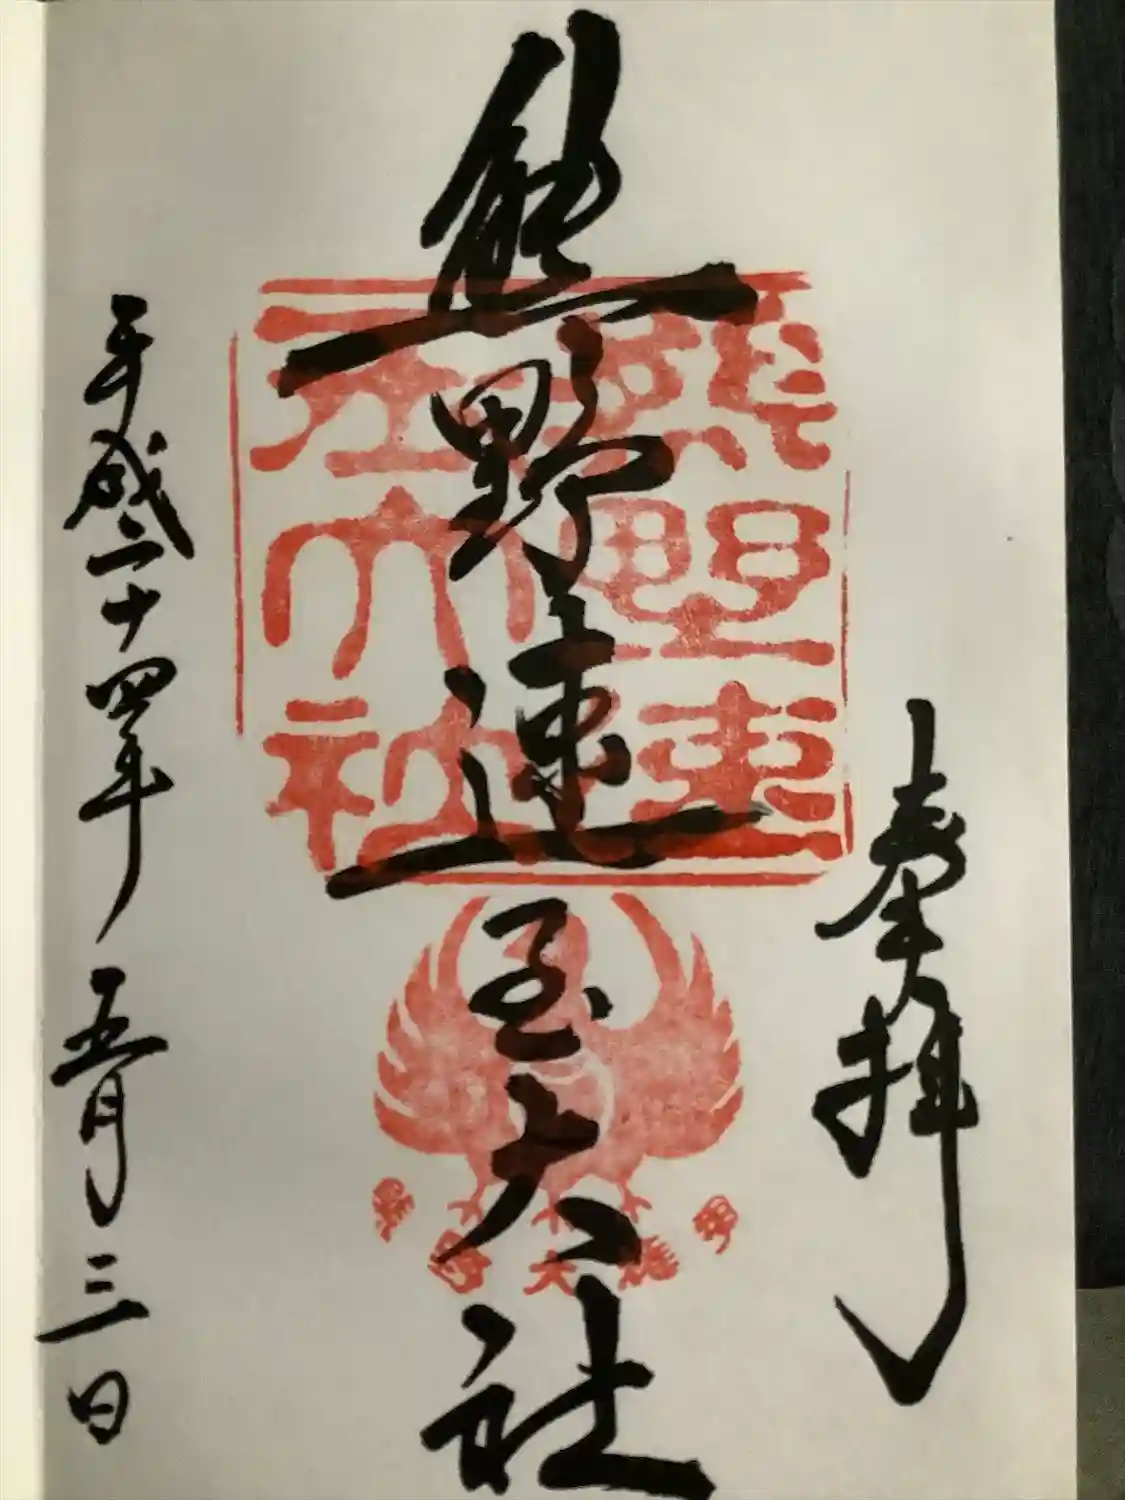 奉拝
熊野速玉大社
平成二十四年 五月三日
熊野速玉大社